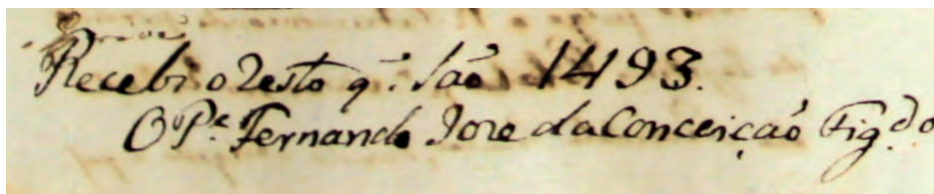 Recebi o Resto q. são 1493.
O Pe. Fernando Joze da Conceição Fig.do